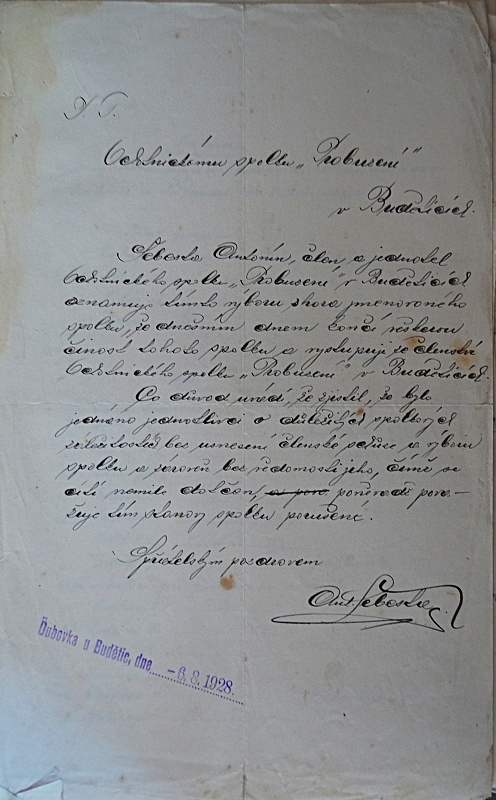 P. T.
Vzdělávacímu spolku „Probuzení"
v Budětících.
Šebesta Antonín, člen a jednatel
Vzdělávacího spolku „Probuzení" v Budětících
oznamuje tímto výboru shora jmenovaného
spolku, že dnešním dnem končí veškerou
činost tohoto spolku a vystupuji ze členství
spolku „Probuzení" v Budětících.
Co důvod uvádí, že zjistil, že bylo
jednáno jednotlivci o důležitých spolkových
záležitostech bez usnesení členské schůze a výboru
spolku a zároveň bez vědomosti jeho, čímž se
cítí nemile dotčen, poněvadž pova-
žuje tím stanovy spolku porušené.
S přátelským pozdravem
Ant. Šebesta
Dubovka u Budětic, dne -6.8.1928